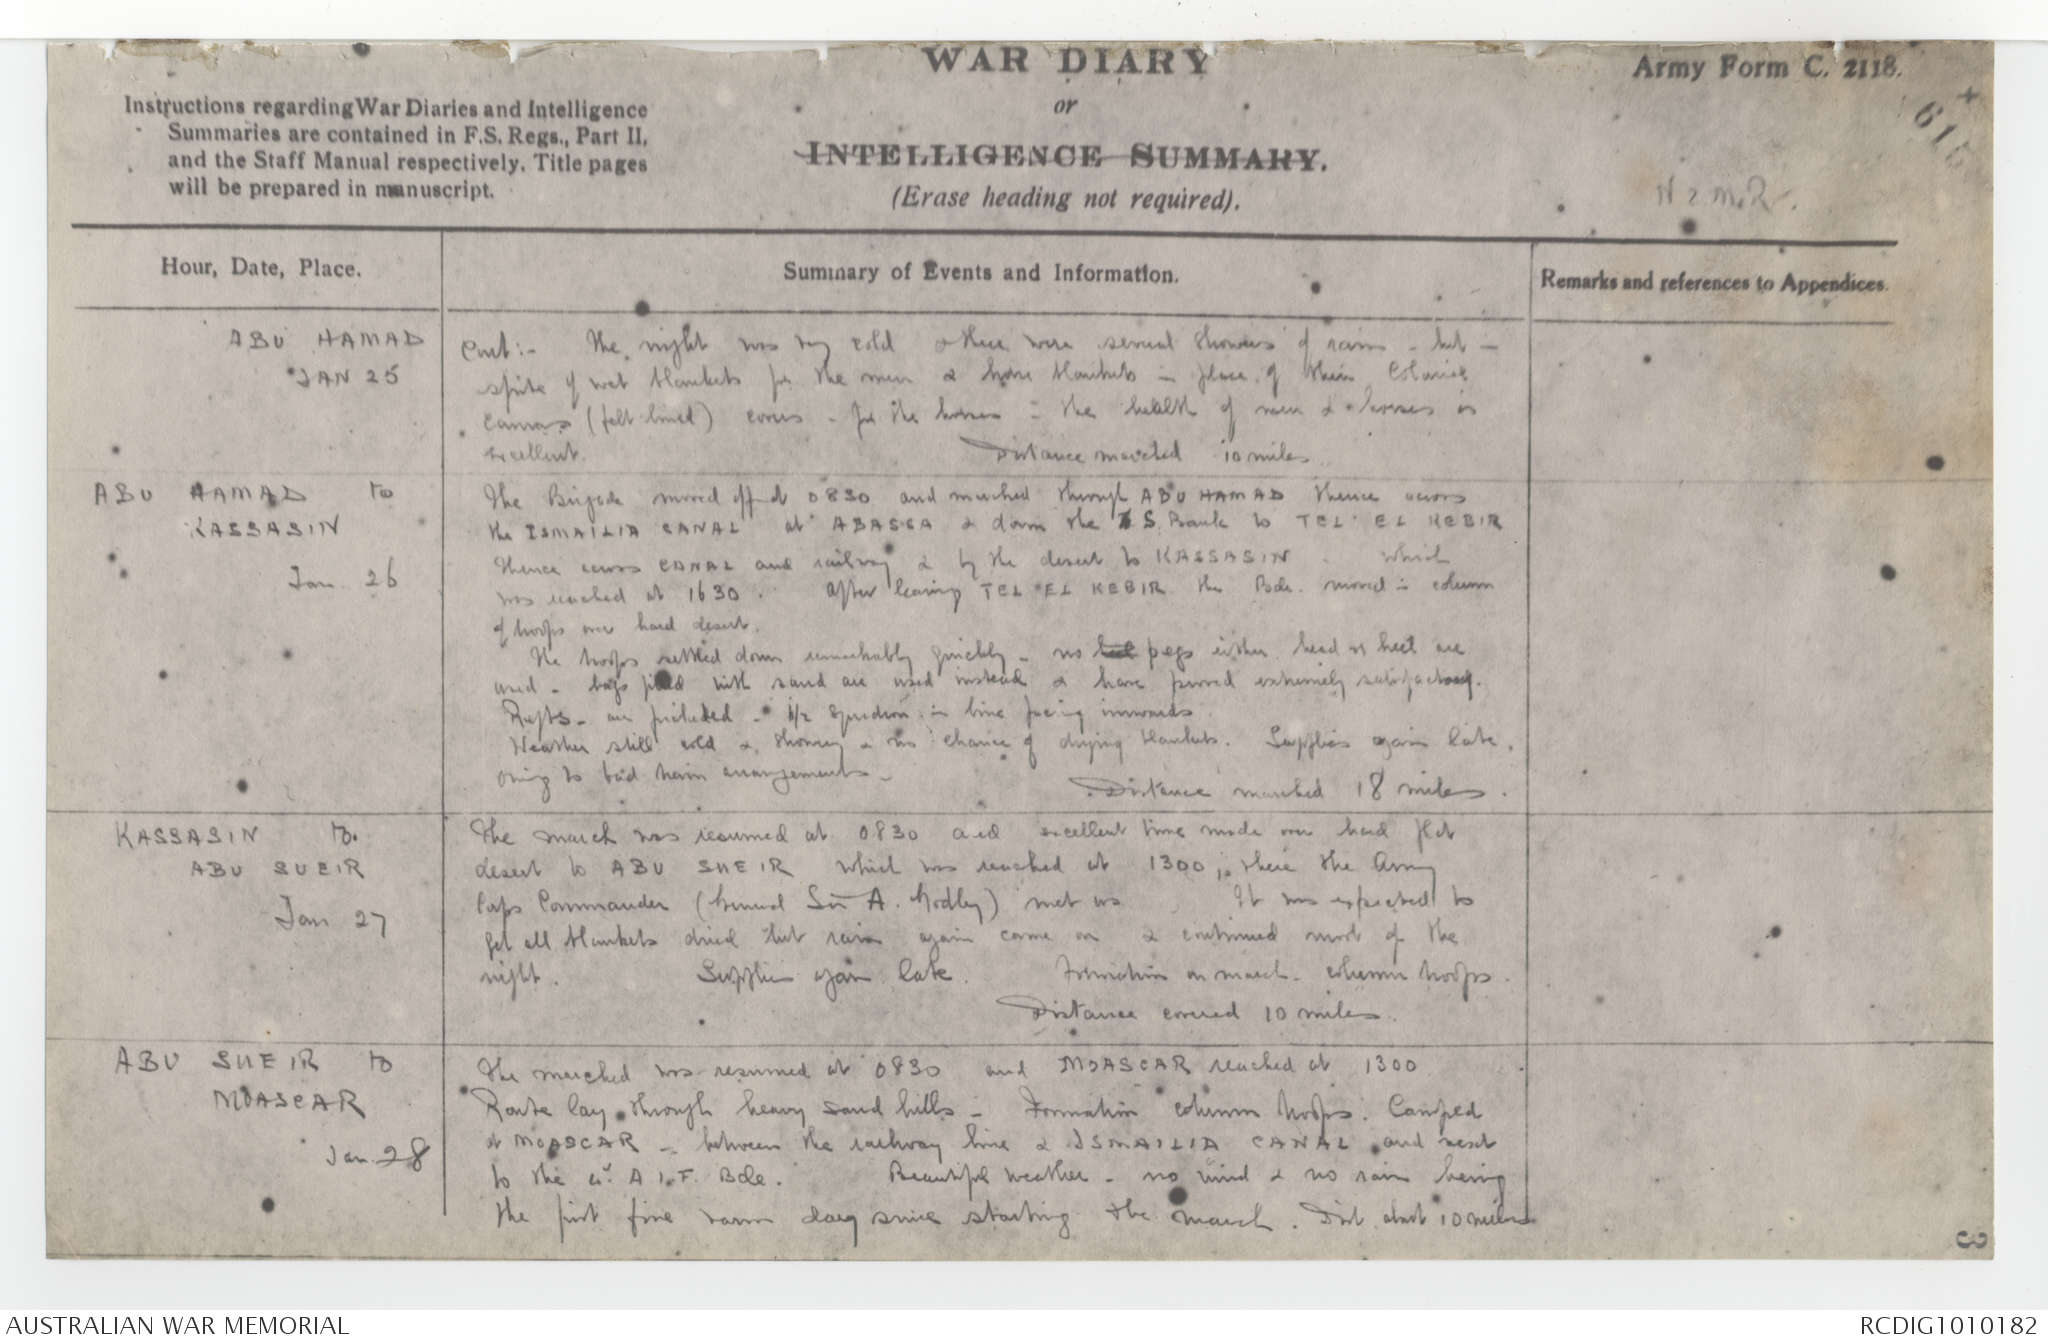 WAR DIARY
or
INTELLIGENCE SUMMARY.
(Erase heading not required).
Army Form C. 2118.
Instructions regarding War Diaries and Intelligence
Summaries are contained in F.S. Regs., Part II,
and the Staff Manual respectively. Title pages
will be prepared in manuscript.
615
N Z M.R.
Hour, Date, Place.
Summary of Events and Information.
Remarks and references to Appendices.
ABU HAMAD
JAN 25
Cont:- The night was very cold & there were several showers of rain - but in
spite of wet blankets for the men & horse blankets in place of their
canvas (felt lined) covers - for the horses - the health of men & horses is
excellent. Distance marched 10 miles
ABU HAMAD to
KASSASIN
Jan 26
The Brigade moved off at 0830 and marched through ABU HAMAD thence across
the ISMAILIA CANAL at ABASSA & down the S. Bank to TEL EL KEBIR
thence across CANAL and railway & by the desert to KASSASIN which
was reached at 1630. After leaving TEL EL KEBIR the Bde. moved in column
of troops over hard desert.
The troops settled down remarkably quickly - no pegs either head or heel are
used - bags filled with sand are used instead & have proved extremely satisfactory.
Regts - are picketed - 1/2 squadron in line facing inwards.
Weather still cold & showery & no chance of drying blankets. Supplies again late,
owing to bad train arrangements -
Distance marched 18 miles.
KASSASIN to
ABU SUEIR
Jan 27
The march was resumed at 0830 and excellent time made over hard flat
desert to ABU SUEIR which was reached at 1300; there the Army
Corps Commander (General Sir A. Godley) met us It was expected to
get all blankets dried but rain again came on & continued most of the
night. Supplies again late. Formation on march - column troops.
Distance covered 10 miles.
ABU SUEIR to
MOASCAR
Jan 28
The marched was resumed at 0830 and MOASCAR reached at 1300
Route lay through heavy sand hills - Formation column troops. Camped
at MOASCAR - between the railway line & ISMAILIA CANAL and next
to the A.I.F. Bde. Beautiful weather - no wind & no rain being
the first fine warm day since starting the march. Dist. about 10 miles
3
AUSTRALIAN WAR MEMORIAL
RCDIG1010182